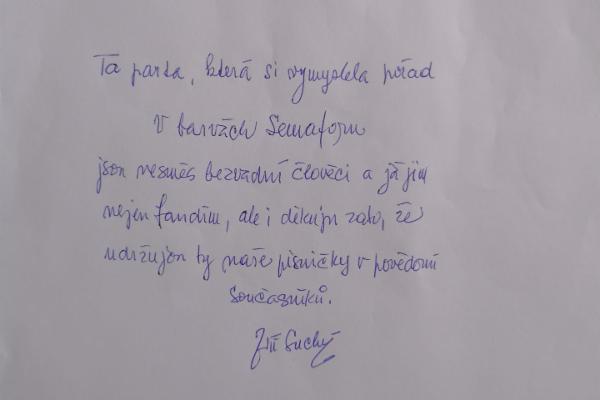 Ta parta, která si vymyslela pořad
V barvách Semaforu
jsou vesměs bezvadní člověci a já jim
nejen fandím, ale i děkuju zato, že
udržujou ty naše písničky v povědomí
současníků.
Jiří Suchý